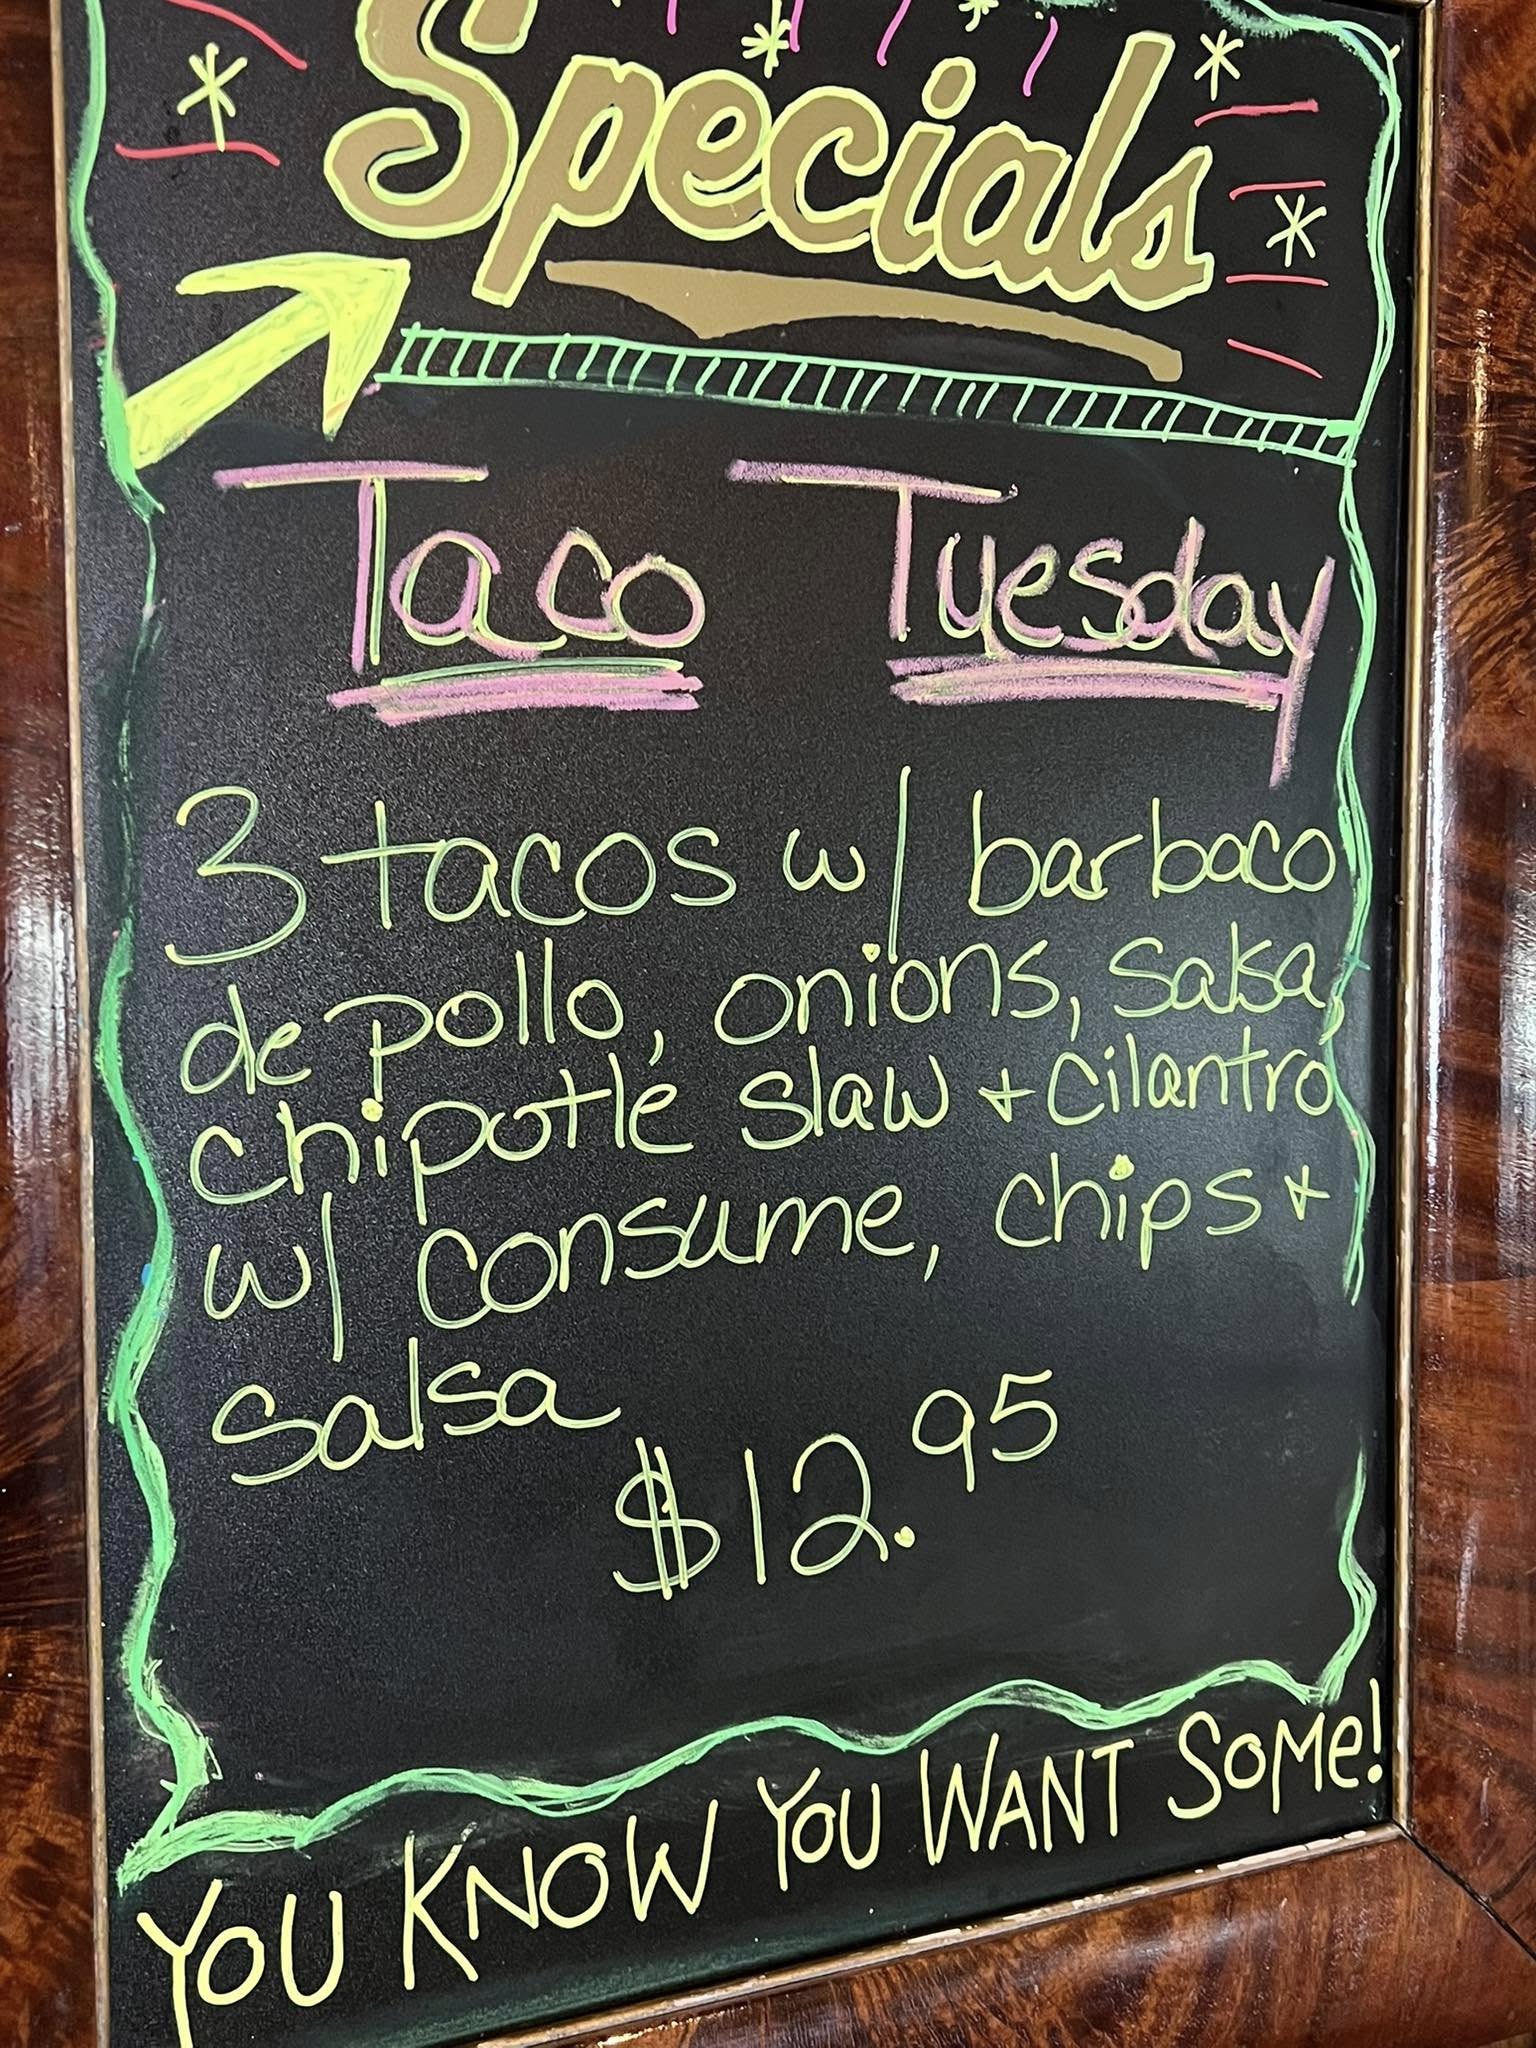 Specials
Taco Tuesday
3 tacos w/ barbaco
de pollo, onions, salsa,
chipotle slaw + cilantro
w/ consume, chips +
salsa
$12.95
YOU KNOW YOU WANT SOMe!